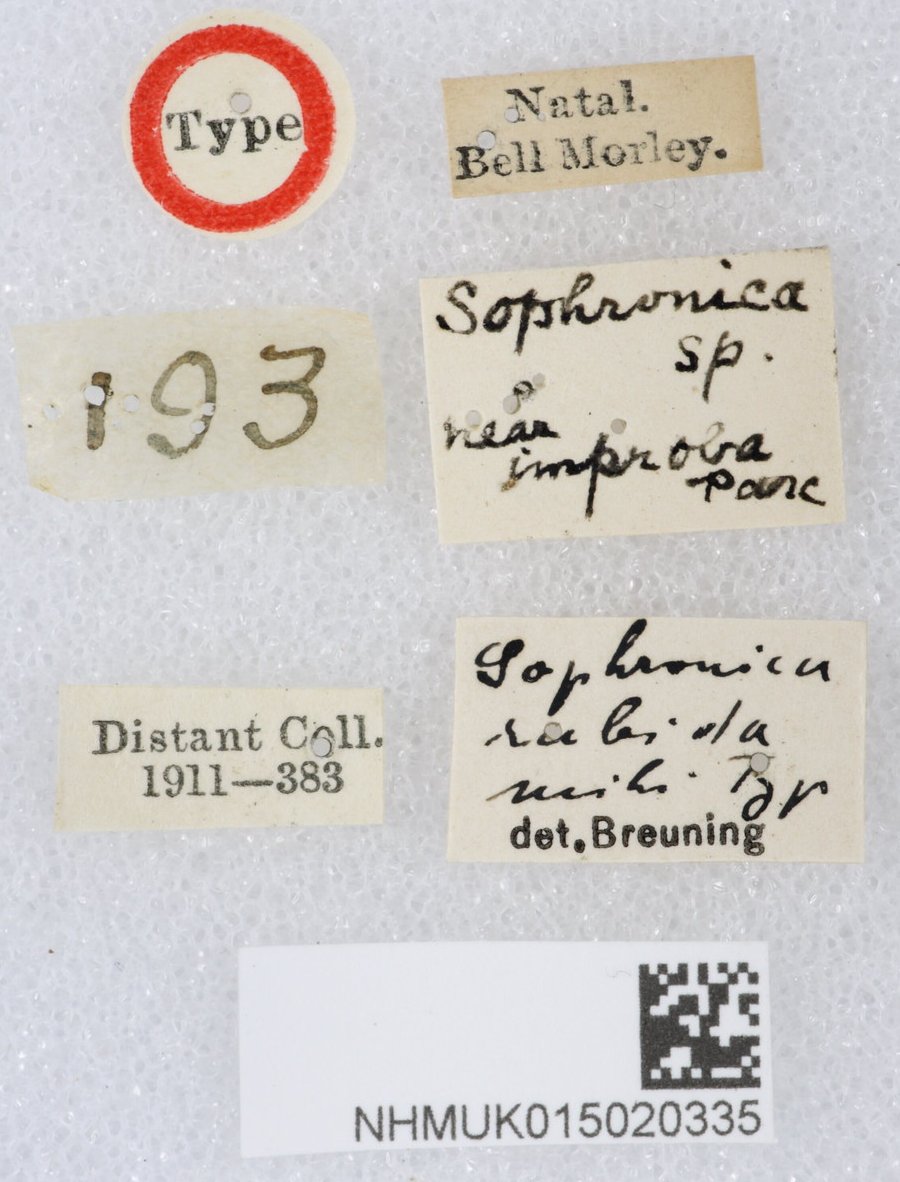 Type
Natal.
Bell Morley.
193
Sophronica
sp.
near
improba
Pasc
Distant Coll.
1911—383
Sophronica
rabida
mihi Typ
det. Breuning
NHMUK015020335